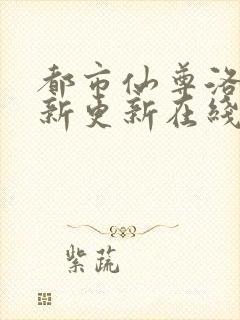 都市仙尊洛
新更新在线
紫蔬